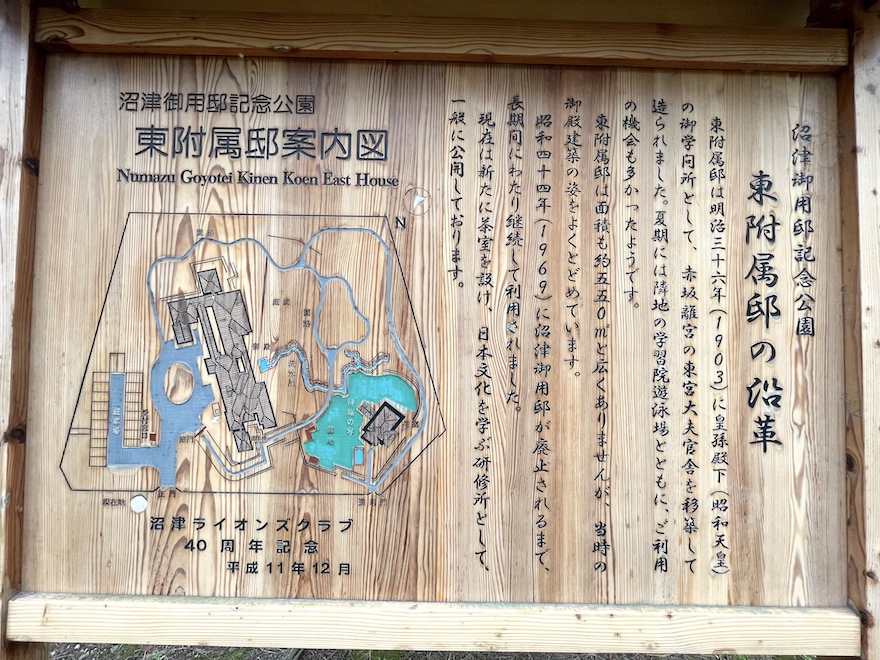 沼津御用邸記念公園
東附属邸の沿革
東附属邸は明治三十六年(1903)に皇孫殿下(昭和天皇)
の御学問所として、赤坂離宮の東宮大夫官舎を移築して
造られました。夏期には隣地の学習院遊泳場とともに、ご利用
の機会も多かったようです。
東附属邸は面積も約五五0㎡と広くありませんが、当時の
御殿建築の姿をよくとどめています。
昭和四十四年(1969)に沼津御用邸が廃止されるまで、
長期間にわたり継続して利用されました。
現在は新たに茶室を設け、日本文化を学ぶ研修所として、
一般に公開しております。
沼津御用邸記念公園
東附属邸案内図
Numazu Goyotei Kinen Koen East House
N
駐車場
正門
現在地
沼津ライオンズクラブ
40周年記念
平成11年12月